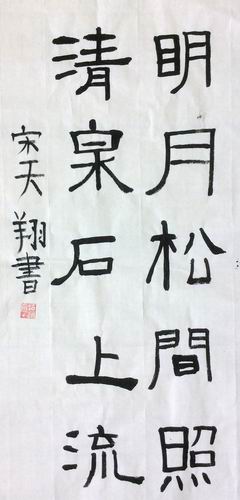 明月松間照
清泉石上流
宋天翔書